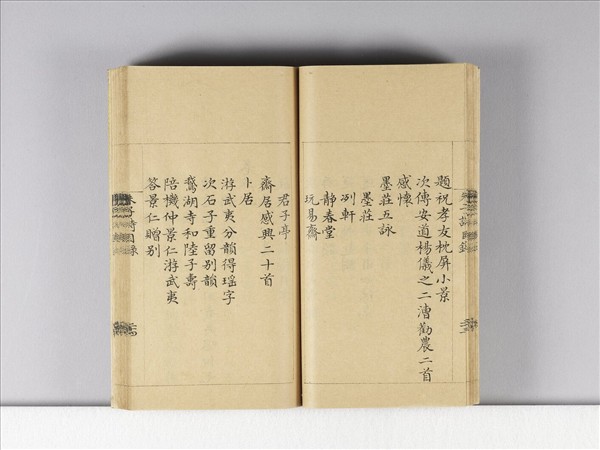 題祝孝友枕屏小景
次傅安道楊儀之二漕勸農二首
感懷
墨莊五詠
墨莊
冽軒
靜春堂
玩易齋
君子亭
齋居感興二十首
卜居
游武夷分韻得瑤字
次石子重留別韻
鵝湖寺和陸子壽
陪機仲景仁游武夷
答景仁贈別